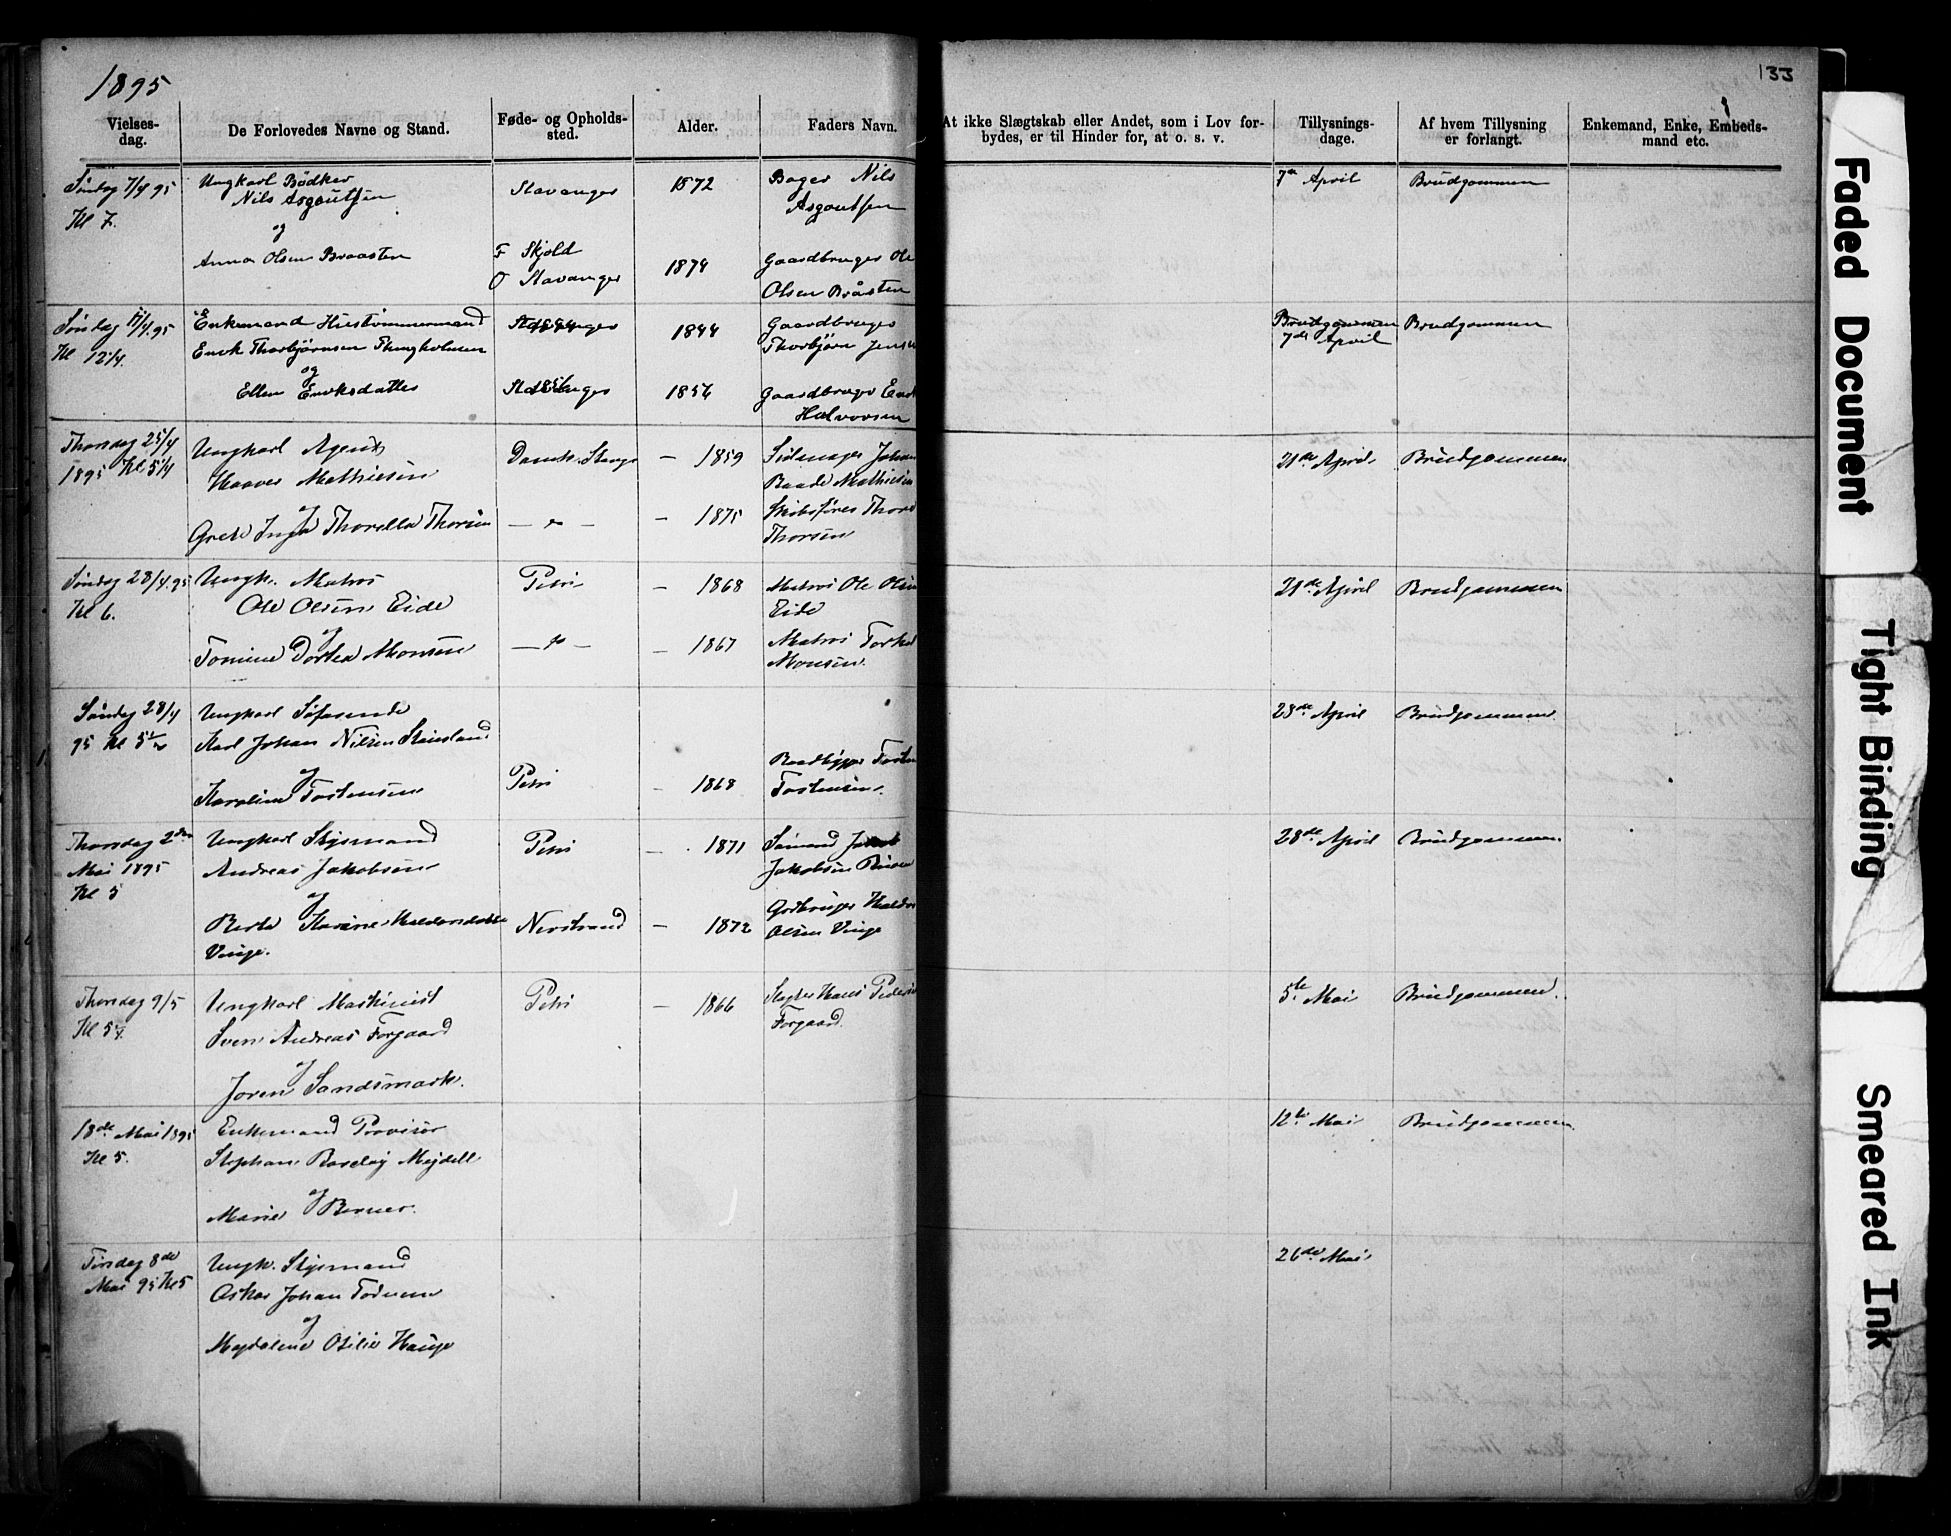 1895
133
Vielses-
dag.
De Forlovedes Navne og Stand.
Føde- og Opholds-
sted.
Alder.
Faders Navn.
At ikke Slægtskab eller Andet, som i Lov for-
bydes, er til Hinder for, at o. s. v.
Tillysnings-
dage.
Af hvem Tillysning
er forlangt.
Enkemand, Enke, Embeds-
mand etc.
Søndag 7/4 95
Kl 7.
Ungkarl Bødker
Nils Asgautsen
og
Anna Olsen Braasten
Stavanger
F Skjold
O Stavanger
1872
1874
Bager Nils
Asgautsen
Gaardbruger Ole
Olsen Bråsten
7de April
Brudgommen
Søndag /4.95
Kl 12 1/4.
Enkemand Hustømmermand
Enok Thorbjørnsen
og
Ellen Enoksdatter
Stavanger
Stavanger
1844
1856
Gaardbruger
Thorbjørn Jensen
Gaardbruger Enok
Halvorsen
Brudgommen
7de April
Brudgommen
Thorsdag 25/4
1895 Kl 5 1/4
Ungkarl Agent
Mathiesen
og
Grete Inga Thorella Thorsen
Domk. Stavger
— " —
— 1859
— 1875
Johan
Baade Mathiesen
Skibsfører Thore
Thorsen
21de April
Brudgommen
Søndag 28/4.95
Kl 6.
Ungk. Matros
Ole Olsen Eide
og
Tomine Dortea Monsen
Petri
— " —
— 1868
— 1867
Matros Ole Olsen
Eide
Matros Torkel
Monsen.
21de April
Brudgommen
Søndag 28/4
95 Kl 5 1/2
Ungkarl Søfarende
Karl Johan Nilsen Steinsland
og
Karoline Tostensen
Petri
— 1868
Baadbygger Tosten
Tostensen.
28de April
Brudgommen.
Thorsdag 2den
Mai 1895
Kl 5
Ungkarl Styrmand
Andreas Jakobsen
og
Berta Karine Haldorsdatter
Vinje.
Petri
Nerstrand
— 1871
— 1872
Sømand Jakob
Jakobsen
Gdbruger Haldor
Olsen Vinje
28de April
Brudgommen.
Thorsdag 9/5
Kl 5
Ungkarl Maskinist
Sven Andreas Forgaard
og
Joren Sandsmark.
Petri
— 1866
Slagter Hans Pedersen
Forgaard.
5te Mai
Brudgommen.
18de Mai 1895
Kl 5.
Enkemand Provisor
Stephan Barclay Mejdell
og
Marie Berner.
12te Mai
Brudgommen.
Tirsdag 8de
Mai 95 Kl 5
Ungk. Styrmand
Oskar Johan
og
Magdalene Otilie Hauge
26de Mai
Faded Document
Tight Binding
Smeared Ink